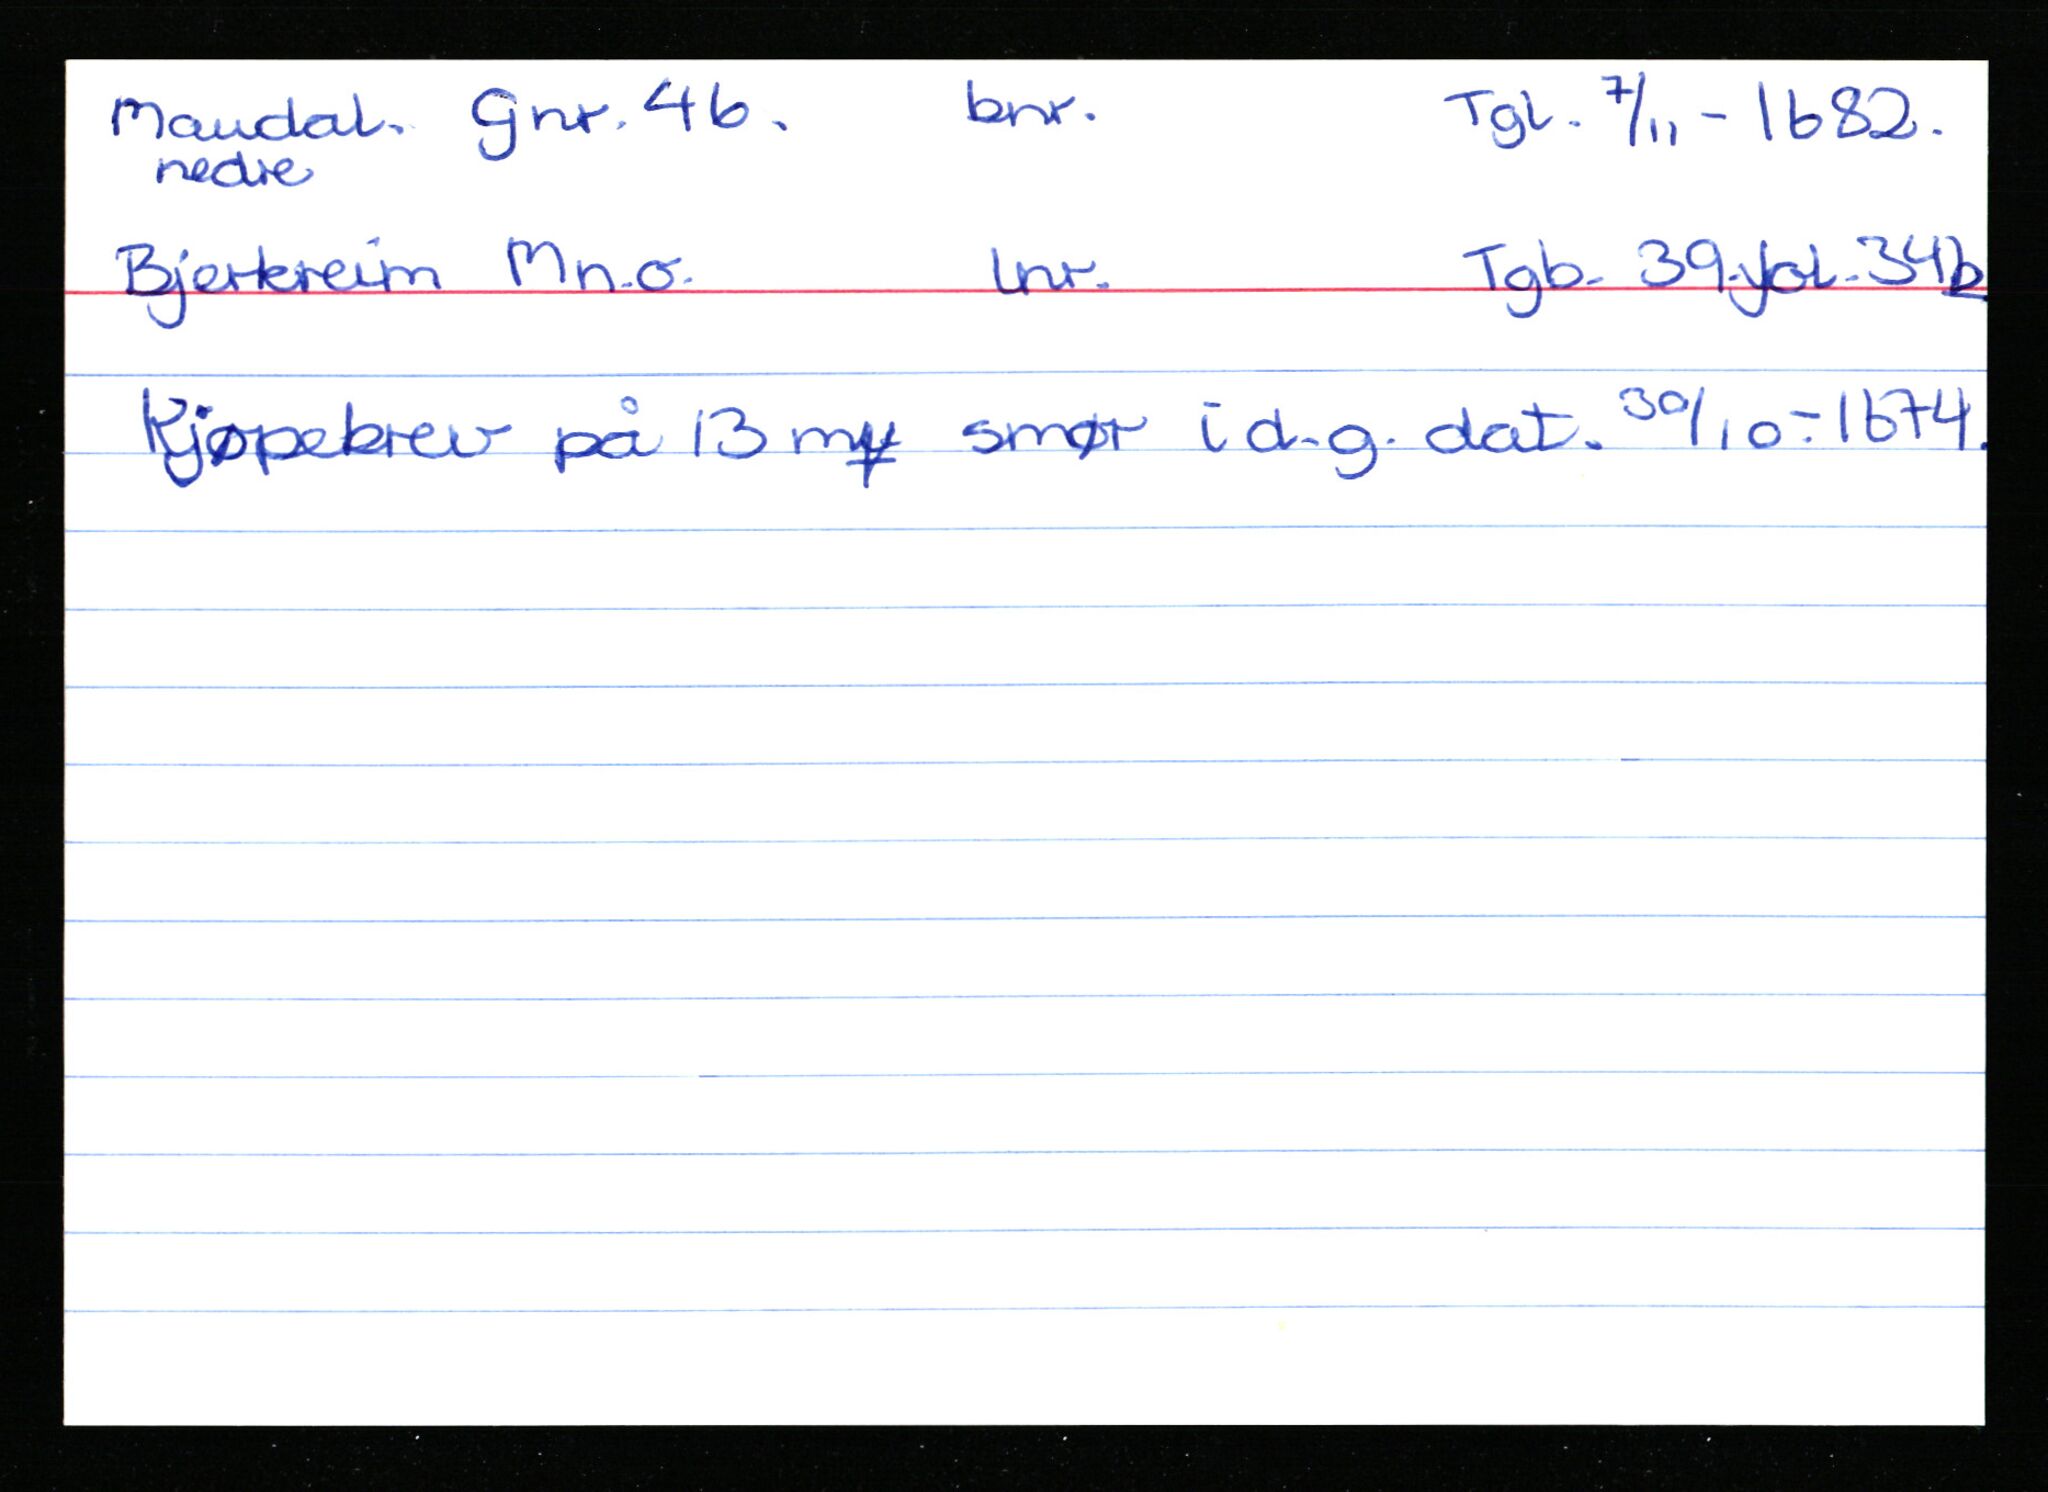 Maudal. Gnr. 46. bnr. Tgl. 7/11 - 1682.
nedre
Bjerkreim Mn.o. lnr. Tgb. 39. fol. 34b
Kjøpebrev på 13 smør i d.g. dat. 30/10 - 1674.